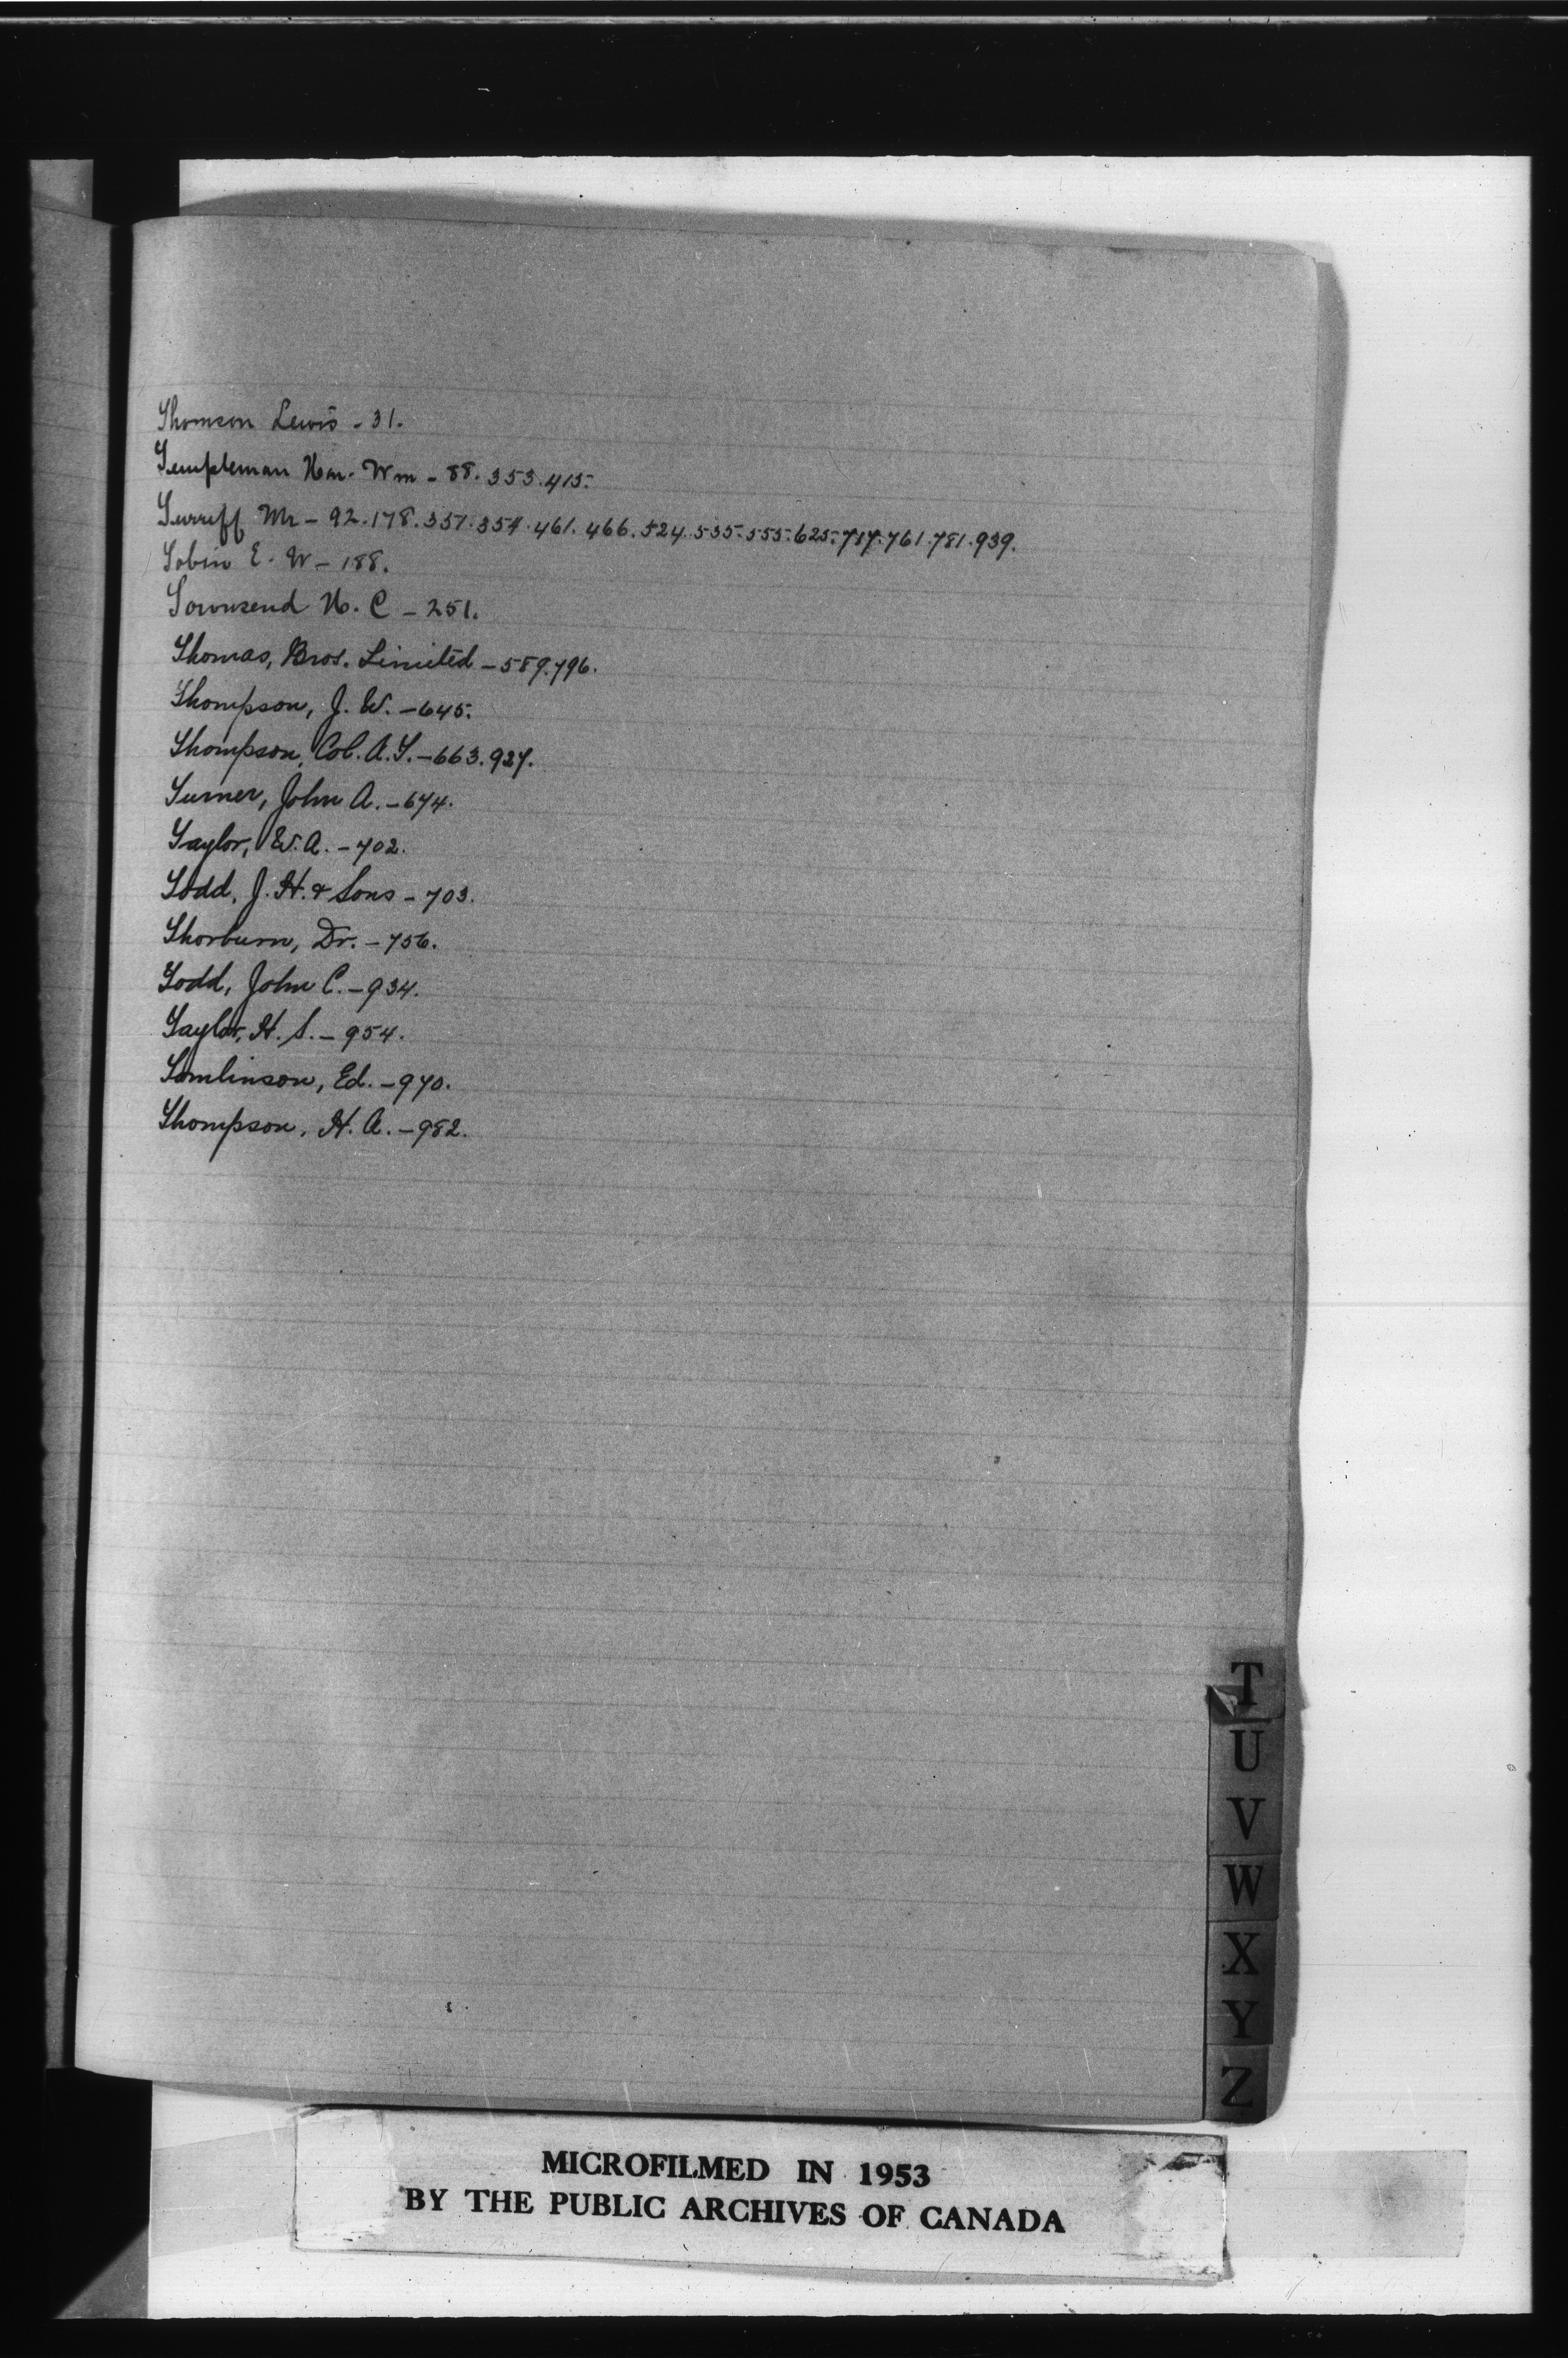 Thomson Lewis - 31.
Templeman Hon. Wm - 88. 353. 415.
Turriff Mr - 92. 178. 351. 354. 461. 466. 524. 535. 555. 625. 717. 761. 781. 939.
Tobin E. W - 188.
Townsend H. C - 251.
Thomas, Bros. Limited - 589. 796.
Thompson, J. W. - 645.
Thompson, Col. A. T. - 663. 927.
Turner, John A. - 674.
Taylor, W. A. - 702.
Todd, J. H. & Sons - 703.
Thorburn, Dr. - 756.
Todd, John C. - 934.
Taylor, H. S. - 954.
Tomlinson, Ed. - 970.
Thompson, H. A. - 982.
T
U
V
W
X
Y
Z
MICROFILMED IN 1953
BY THE PUBLIC ARCHIVES OF CANADA